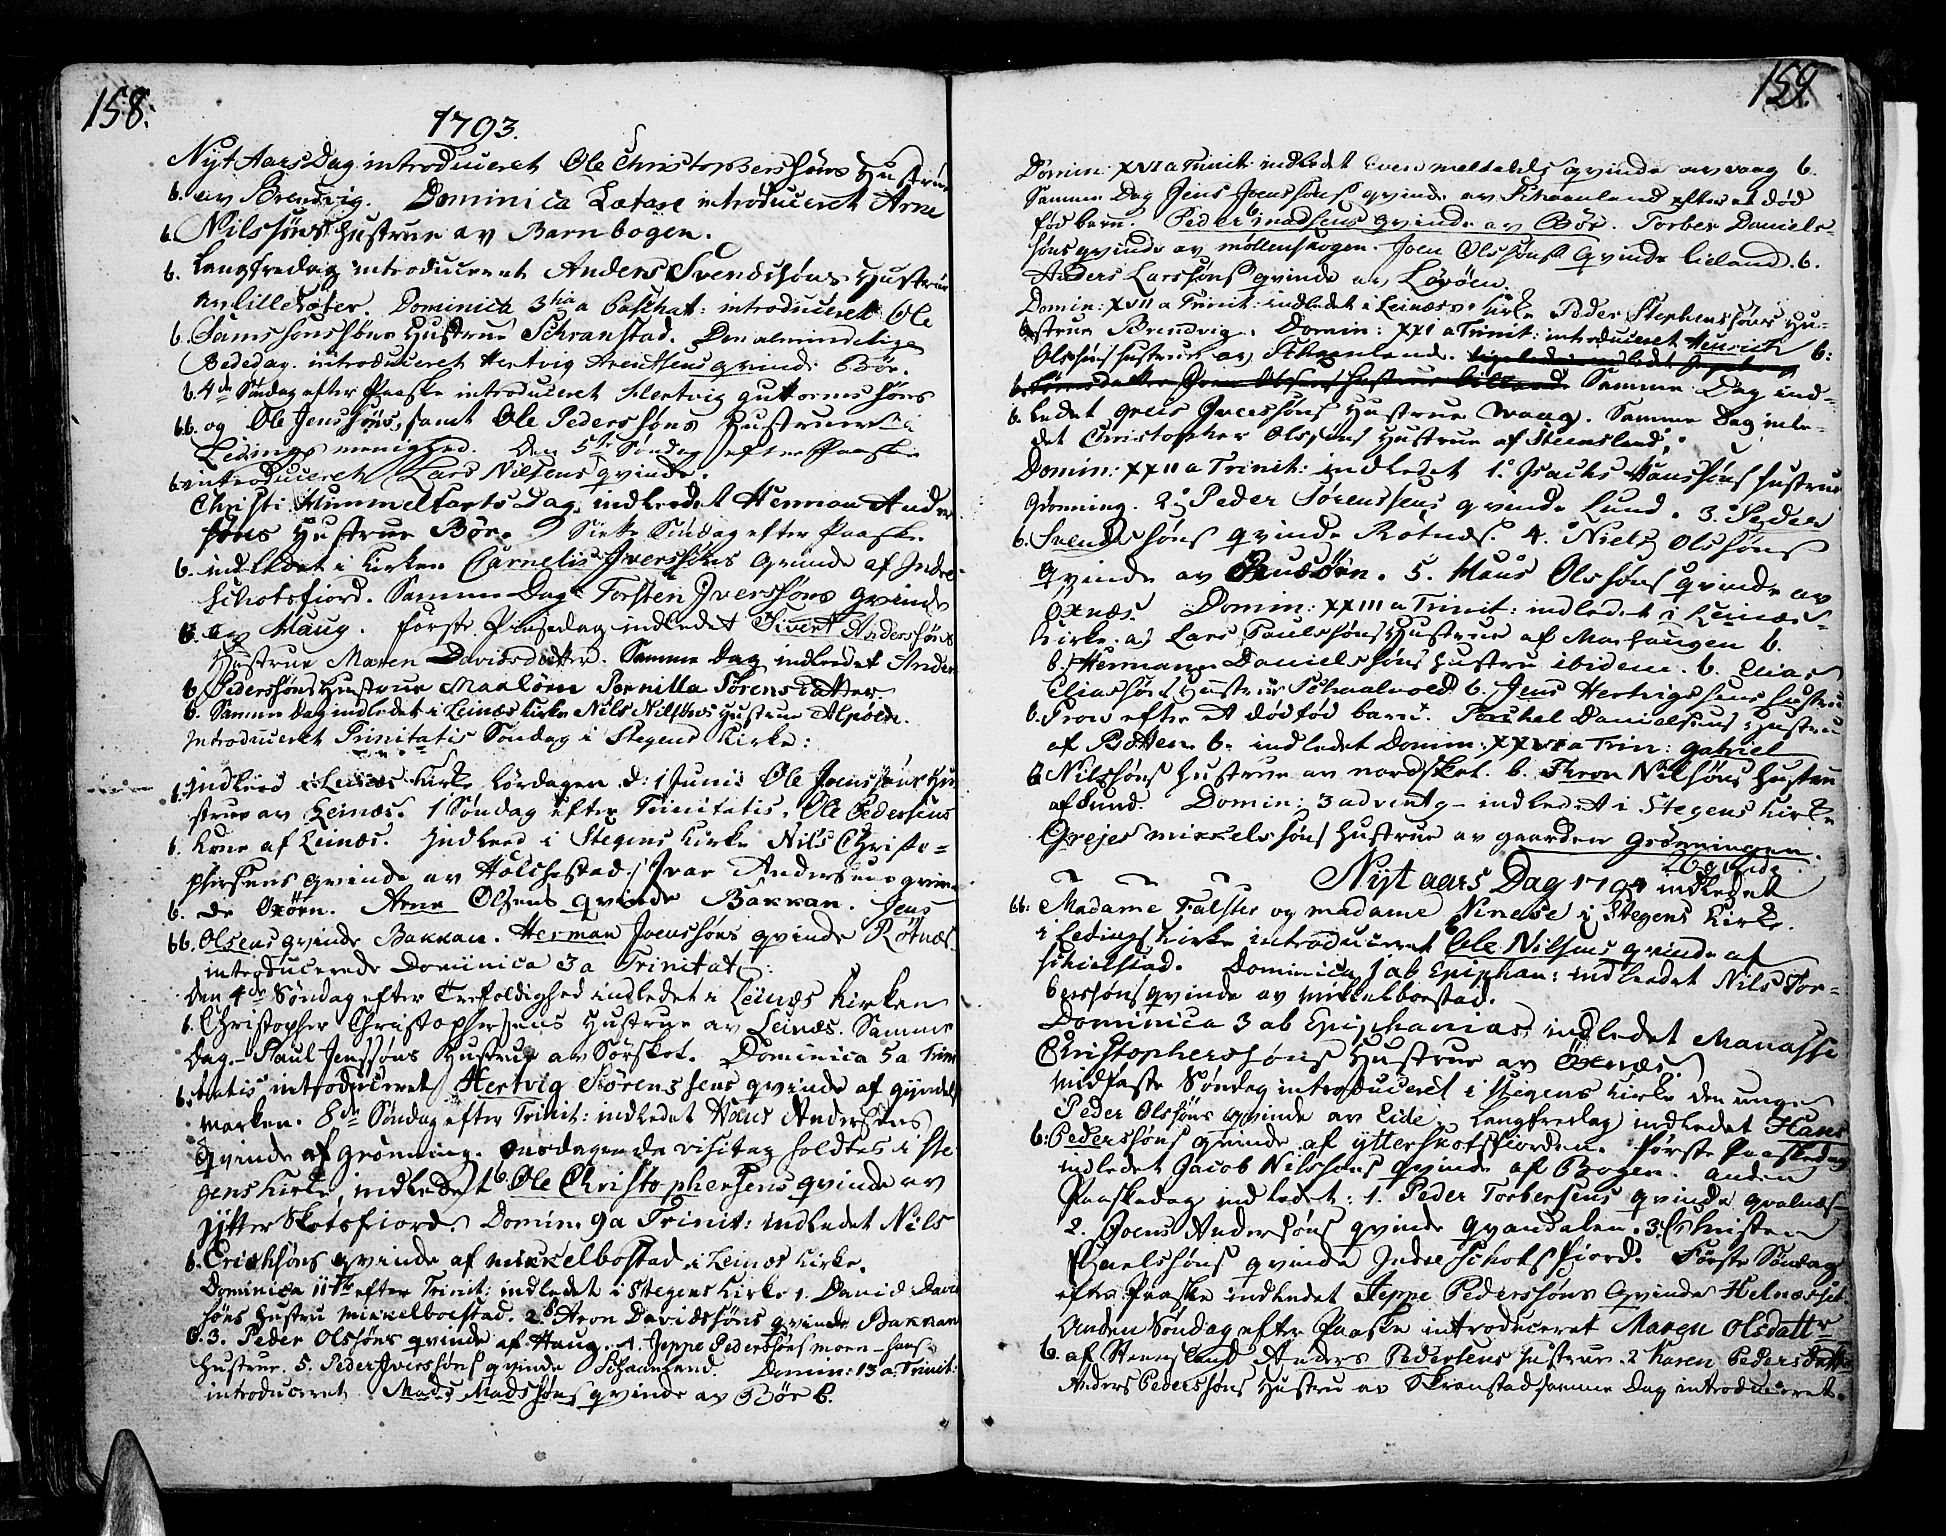 158.
1793.
Nyt Aars Dag introduceret Ole Christophersøns Hustrue
6. av Brendvig. Dominica Lætare introduceret Arne
6. Nilssøns Hustrue av Barnbogen.
6. Langfredag introduceret Anders Svendsøns Hustrue
av Lille Dominica 3tia a Paschat: introduceret Ole
6. Samssonssøns Hustrue Schranstad. Den almindelige
Bededag introduceret Hertvig Arentsens qvinde Bör.
6. 4de Söndag efter Paaske introduceret Hertvig guttormssøns
66. og Ole Jenssøns, samt Ole Pederssøns Hustruer i
Ledings menighed. Den 5te Söndag efter Paaske
6. introduceret Lars Nilsens qvinde.
Christi Himmelfarts Dag, indleedet Herman Ander
søns Hustrue Bör. Siette Söndag efter Paaske
6. indledet i Kirken Cornelis Iverssøns qvinde af Indre
Schotsfiord. Samme Dag Torsten Iverssøns qvinde
6. av Haug. første Pinsedag indledet Sivert Anderssøns
Hustrue Maren Davidsdatter. Samme Dag indleedet Anders
6. Pederssøns Hustrue Maalöen Pernilla Sörensdatter.
6. Samme dag indledet i Leinæs Kirke Nils Nilssøns Hustrue Alpöen.
Introduceret Trinitatis Söndag i Stegens Kirke:
1. Indleed i Leinæs Kirke Lördagen d: 1 Junii Ole Joenssøns Hu
strue av Leinæs. 1 Söndag efter Trinitatis. Ole Pedersens
6. Kone af Leinæs. Indleed i Stegens Kirke Nils Christo=
phersens qvinde av Holchestad. Ivar Andersens qvin
6. de Oxöen. Arne Olsens qvinde Bakkan. Jens
66. Olsens qvinde Bakkan. Herman Joenssøns qvinde Rötnæs.
introducerede Dominica 3 a Trinitat:
Den 4de Söndag efter Trefoldighed indledet i Leinæs Kirken
6. Christopher Christophersens Hustrue av Leinæs. Samme
Dag Paul Jenssøns Hustrue av Sörskot. Dominica 5 a Trini
6. tatis introduceret Hertvig Sörenssens qvinde af
marken. 8de Söndag efter Trinit: indledet Hans Andersens
qvinde af grönning. onsdagen da visitas holdtes i Ste
gens Kirke, indledet 6. Ole Christophersens qvinde av
ytter Skotsfiord. Domin: 9 a Trinit: indledet Nils
6. Erichsøns qvinde af mikkelbostad i Leinæs Kirke.
Dominica 11te efter Trinit: indledet i Stegens Kirke 1. David David
søns Hustru mikkelboestad. 2. 6 Aron Davidssøns qvinde Bakkan
6. 3. Peder Olssøns qvinde af Haug. 4. Jeppe Pederssøns
Hustrue. 5. Peder Iverssøns qvinde Schaanland. Domin: 13 a Trinit:
introduceret Mads Madssøns qvinde av Bör 6.
159.
Domin: XVI a Trinit: indledet Even qvinde av vaag 6.
Samme Dag Jens Joenssøns qvinde av Schaanland efter et död
fød barn. Peder madsens qvinde av Bör. Torber Daniels=
søns qvinde av mollenskogen. Joen Olssøns qvinde Lieland. 6.
Anders Larssøns qvinde av Lövöen.
Domin: XVII a Trinit: indledet i Leinæs Kirke Peder Stephenssøns Hu-
strue Brendvig. Domin: XXI a Trinit: introduceret Henrich
Olssøns Hustrue av Schaanland. 6.
Samme Dag ind-
6. ledet greis Iverssøns Hustrue Waag. Samme Dag inle-
det Christopher Olssøns Hustrue af Steensland.
Domin: XXII a Trinit: indledet 1. Isachs Hanssøns Hustrue
Grönning. 2. Peder Sörenssens qvinde Lund. 3. Peder
6. Svendssøns qvinde Rötnæs. 4. Niels Olssøns
qvinde av 5. Hans Olssøns qvinde av
Oxnæs. Domin: XXIII a Trinit: indledet i Leinæs-
Kirke. a) Lars Paulssøns Hustrue af Marhaugen 6.
b) Hermann Danielssøns Hustru ibidem. 6. Elias
Eliassøns Hustrue Schaalvold 6. Jens Hertvigssens Hustrue
6. efter et dödfød barn. Danielsens Hustru
af Botten 6. indledet Domin: XXVI a Trin: Gabriel
6 Nilssøns Hustrue av nordskot. 6. Thron Nilssøns Hustrue
af Lund. Domin: 3 advent: indledet i Stegens Kirke
Grejes mikkelssøns Hustrue av gaarden Grönningen.
Nyt aars Dag 1794 indledet
66: Madame Falster og madame i Stegens Kirke.
i Ledings Kirke introduceret Ole Nilsens qvinde af
Schielstad. Dominica 1 ab Epiphan: indleedet Nils Tor-
berssøns qvinde av mikkelboestad.
Dominica 3 ab Epiphanias, indledet Manasse
Christopherssøns Hustrue av Oxnæs.
Midfaste Söndag introduceret i Stegens Kirke den unge
Peder Olssøns qvinde av Eide. Langfredag indledet Hans
6: Pederssøns qvinde af ytterskotsfiorden. Første Paaskedag
indledet Jacob Nilssøns qvinde af Bogen. Anden
Paaskedag indledet: 1. Peder Torbersens qvinde qvalnæs-
2. Joens Anderssøns qvinde qvandalen. 3. Christen
Paulssøns qvinde Indre Schotsfiord. Første Söndag
efter Paaske indledet Jeppe Pederssøns qvinde
Anden Söndag efter Paaske introduceret Maren Olsdattr
6. af Steensland Anders Pedersens Hustrue. 2 Karen Pedersdatt
Anders Pederssøns Hustru av Skranstad samme Dag introduceret.